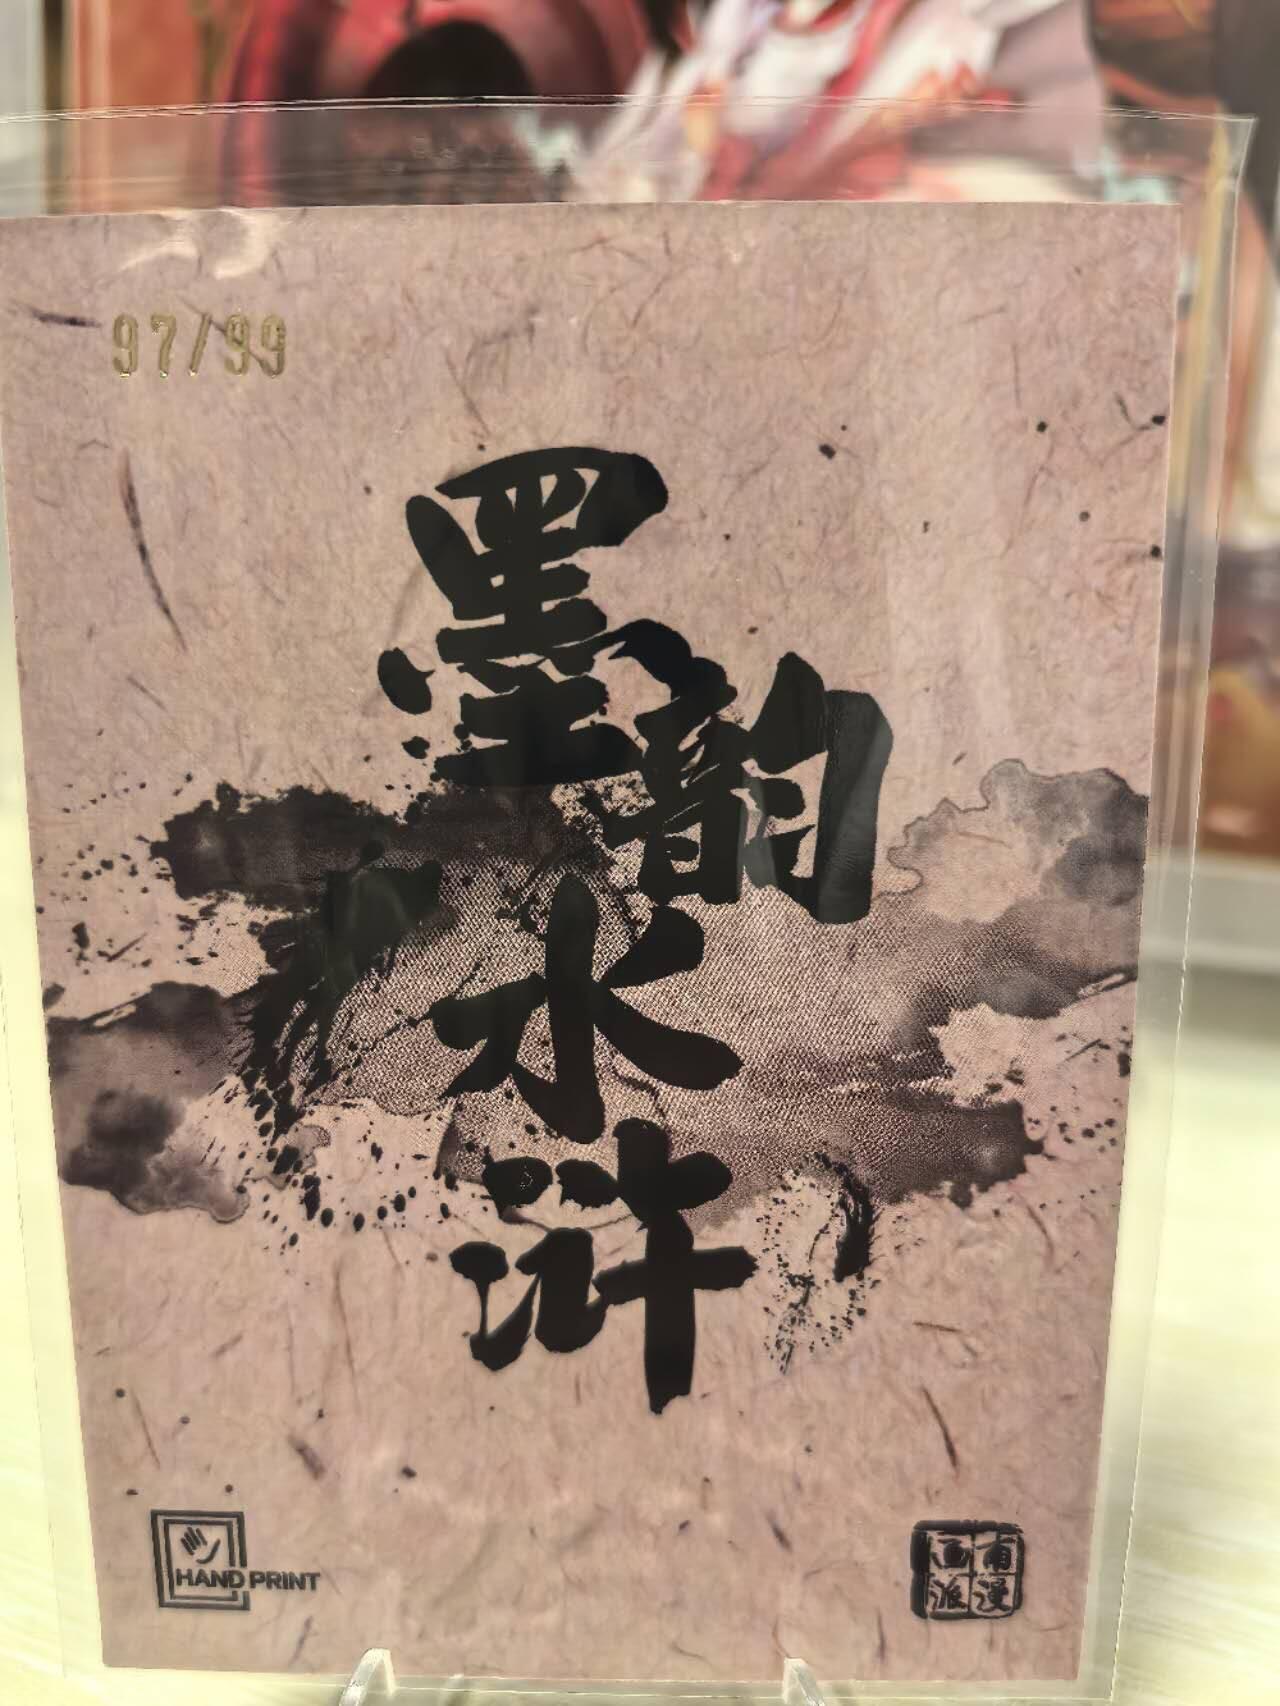 97/99
墨韵
水浒
HAND PRINT
有漫
画派